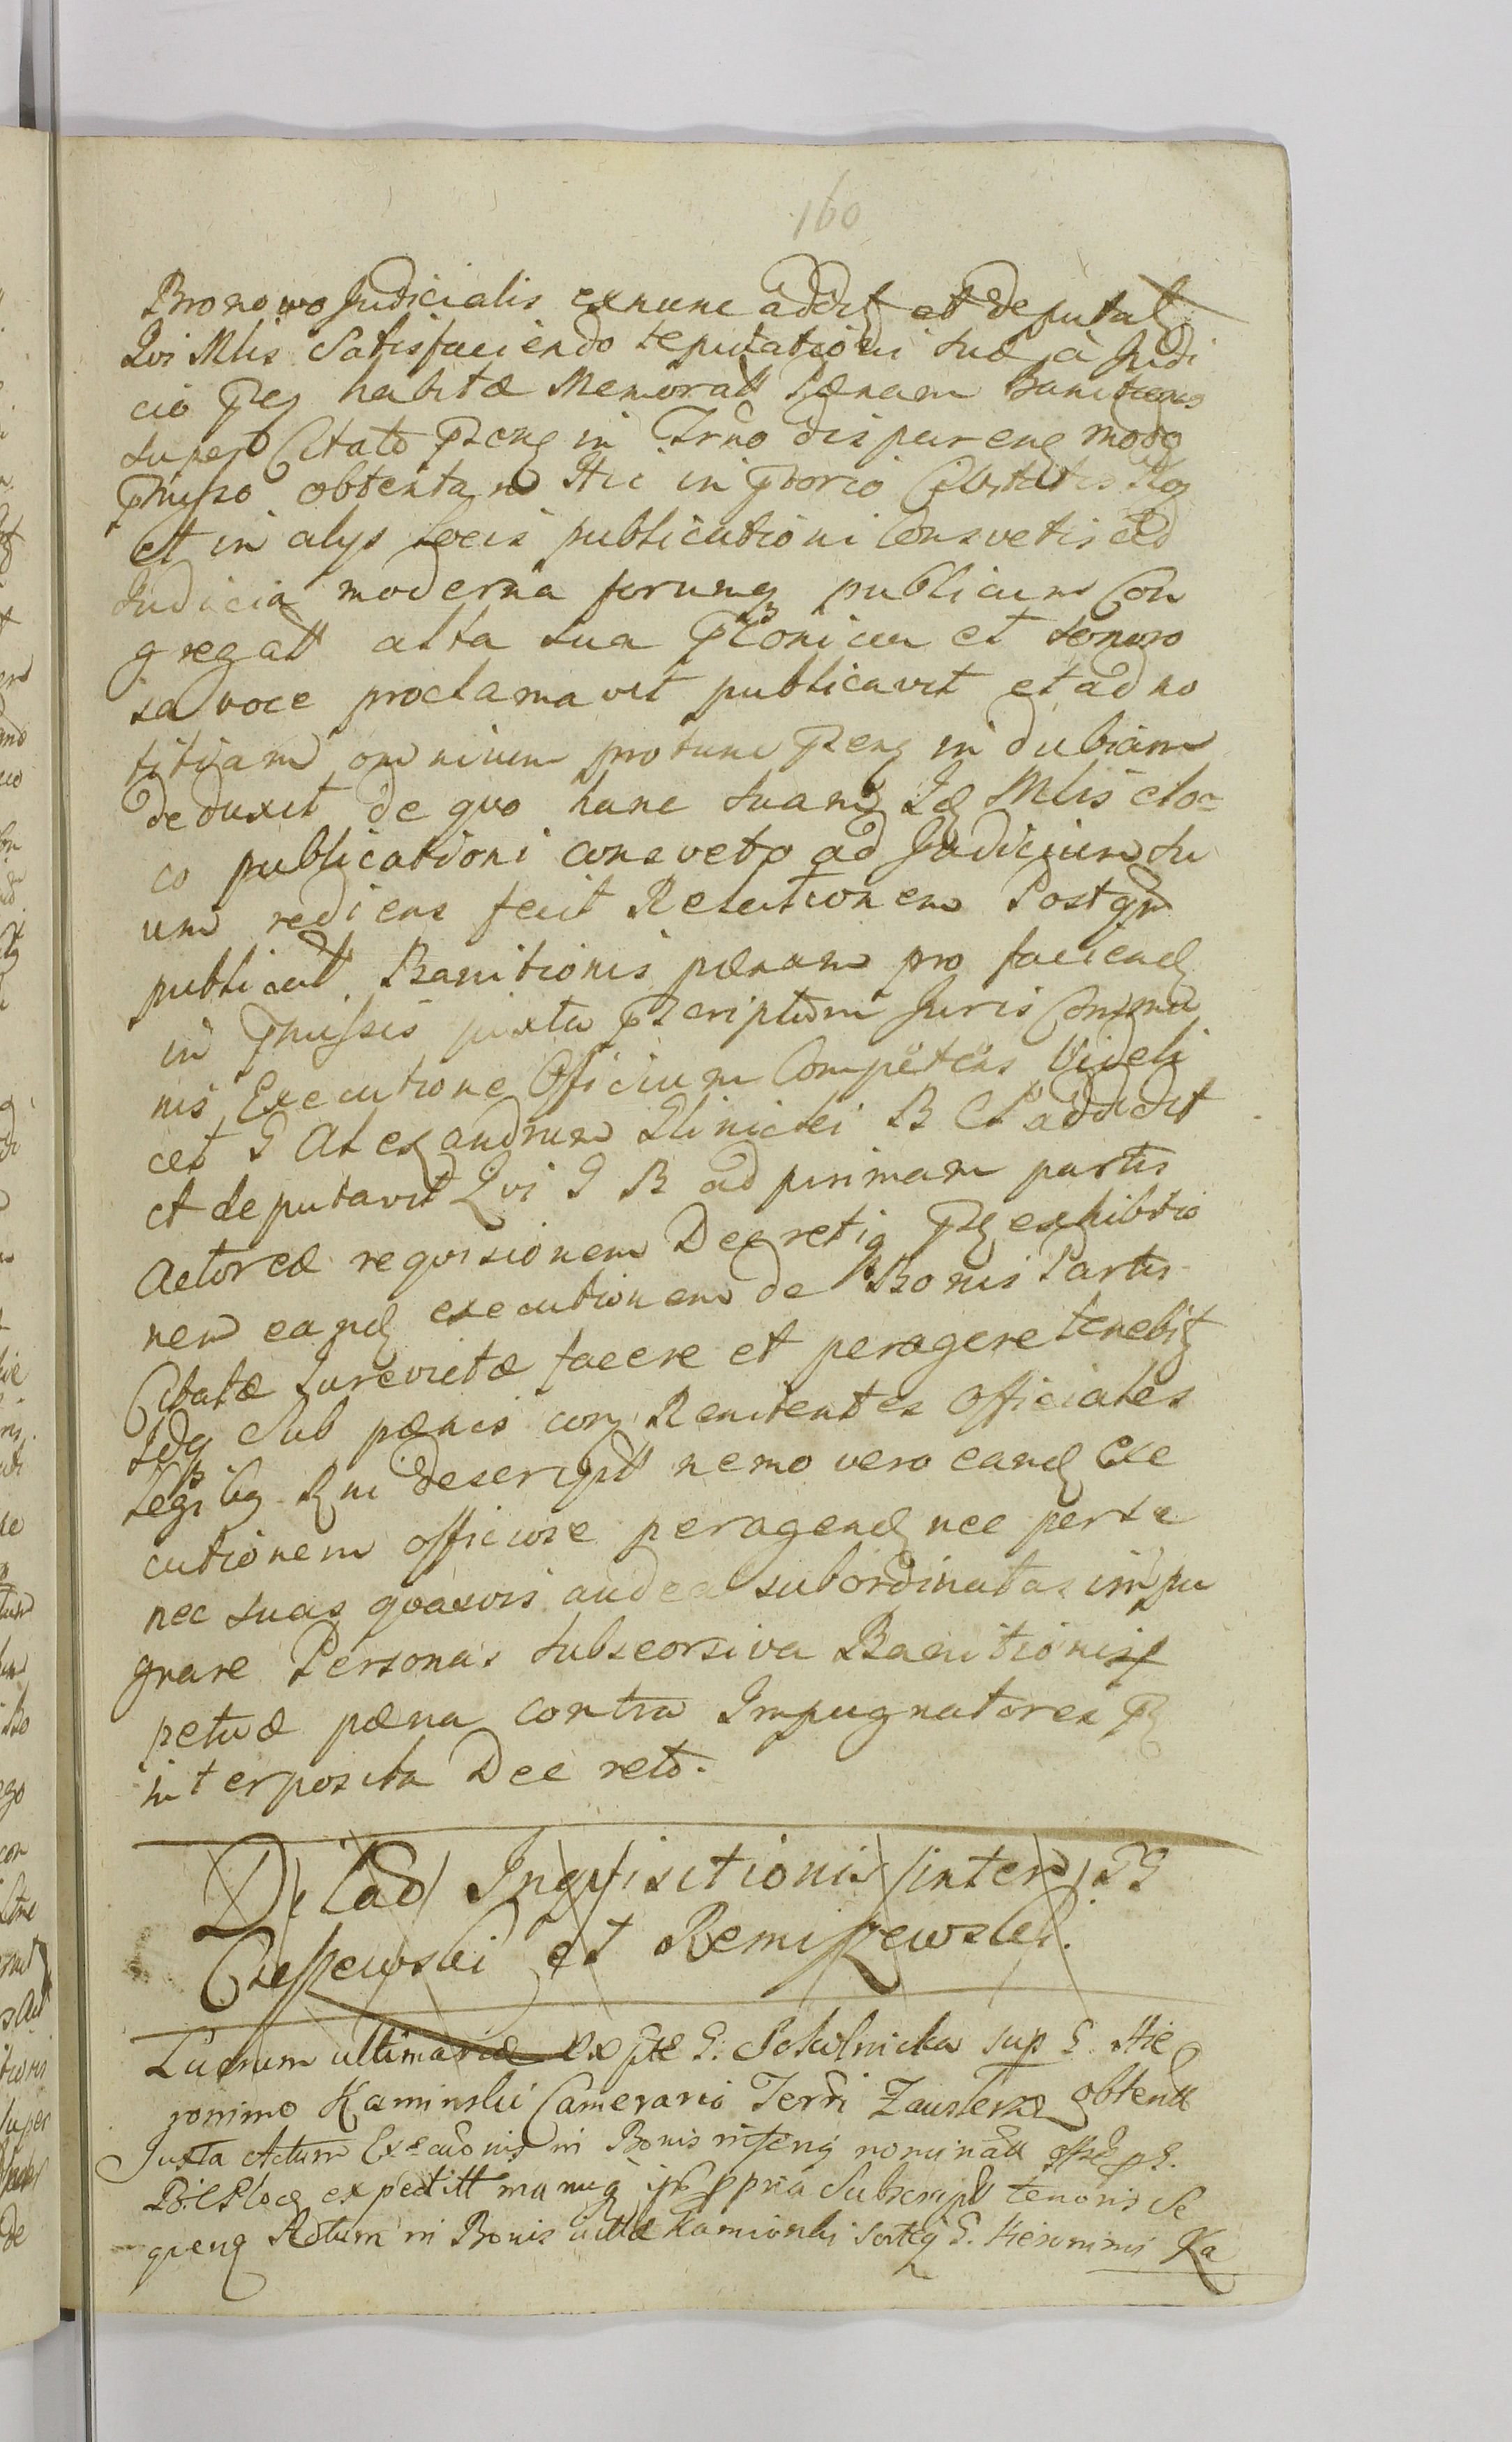 160
Bronowo Judicialis exnunc addit et deputat
Qvi Mlis Satisfaciendo deputationi suæ à Judi
cio habitæ Memoratt Pænam Banitionis
super Citato in Trno dispareng modo
obtentam Hic in Ptorio Civitatis
et in alys locis publicationi Consvetis ad
Judicia moderna forumq publicum Con
gregatt alta sua et sonoro
sa voce proclamavit publicavit et ad no
titiam omnium protunc in dubiam
deduxit de qvo hanc suam Id Mlis e lo=
co publicationi consveto ad Judicium su
um rediens fecit Relationem Postqm
publicat Banitionis pænam pro faciend
in juxta Pscriptum Juris Commu
nis Executione Officium Competens Videli
cet G Alexandrum Glinicki B C P addidit
et deputavit Qvi G B ad primam partis
Actoreæ reqvisionem Decretiq exhibitio
nem eand executionem de Bonis Partis
Citatæ Jurevictæ facere et peragere tenebit
Idq Sub pænis con Renitentes Officiales
Legibq Rni descriptt nemo vero eand Exe
cutionem officiose peragend nec per se
nec suas qvasvis audeat subordinatas impu
gnare Personas sub seorsiva Banitionis
petuæ pæna contra Impugnatores
interposita Decreto.
Dilao Inqvisitionis inter GG
Cieszewski et Remiszewski.
Lucrum ultimariæ ex pte G. Sokolnicka sup G. Hie
ronimo Kaminski Camerario Terri Zauskrzæ obtentt
Juxta Actum Execuonis in Bonis infeng nominatt
B: C Ploc expeditt manuq ppria Subscriptt tenoris Se
qveng Actum in Bonis villæ Kamionki Sorteq G. Hieronimi Ka